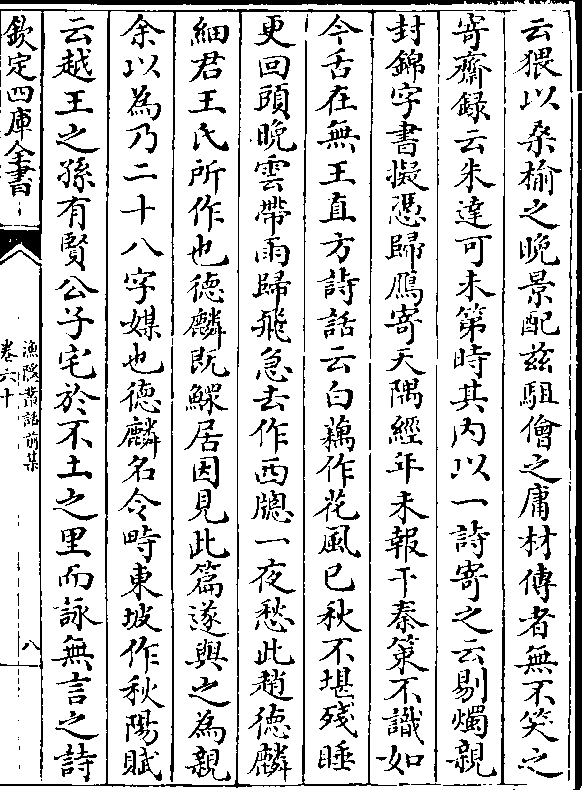 云猥以桑榆之晚景配兹駔儈之庸材傳者無不笑之
寄齋録云朱達可未第時其内以一詩寄之云剔燭親
封錦字書擬憑歸鴈寄天隅經年未報干秦策不識如
今舌在無王直方詩話云白藕作花風已秋不堪殘睡
更回頭晚雲帶雨歸飛急去作西牕一夜愁此趙德麟
細君王氏所作也德麟既鰥居因見此篇遂與之為親
余以為乃二十八字媒也德麟名令畤東坡作秋陽賦
云越王之孫有賢公子宅於不土之里而詠無言之詩
欽定四庫全書
漁隱叢話前集
卷六十
八